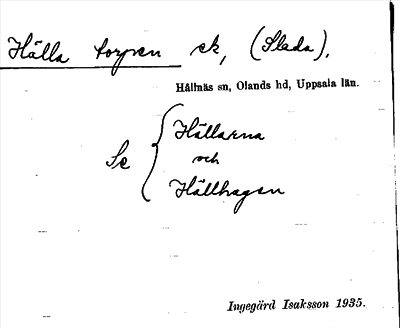 Hälla torpen ek, (Slada).
Hållnäs sn, Olands hd, Uppsala län.
Se { Hällarna
och
Hällhagen
Ingegärd Isaksson 1935.